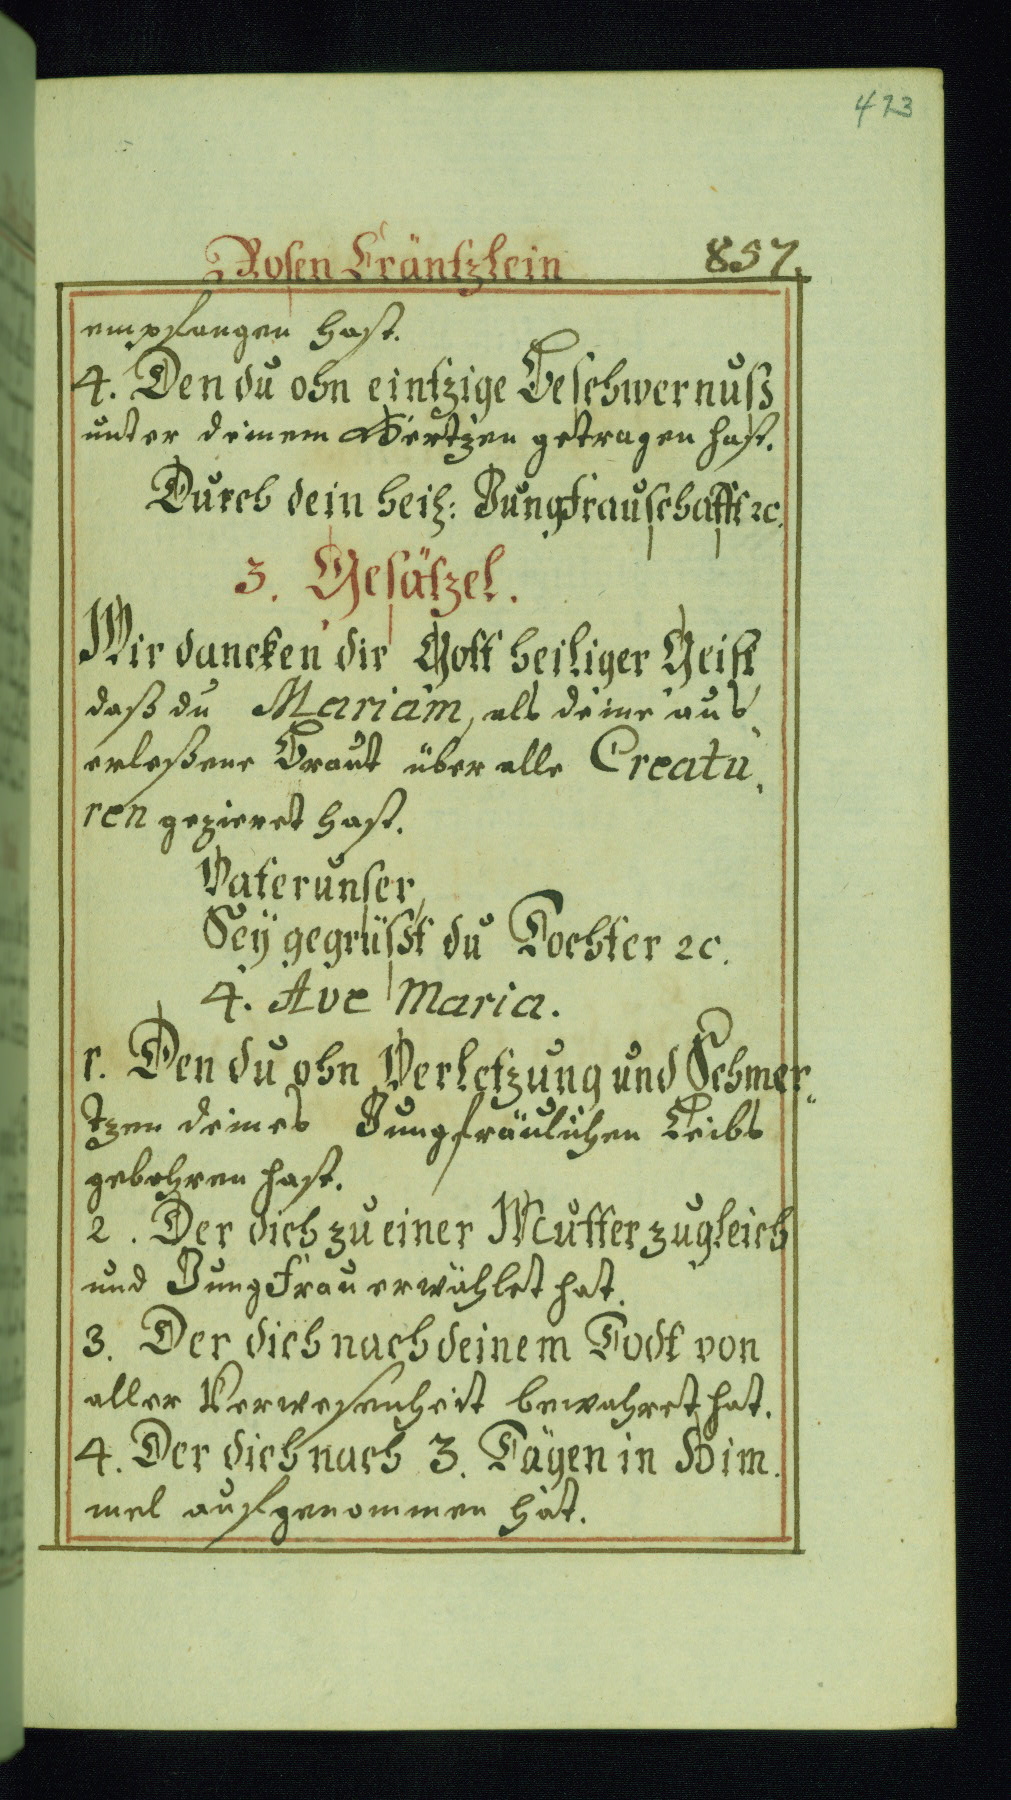 423
Rosen Kräntzlein 857.
empfangen hast.
4. Den du ohn eintzige Beschwernuß
unter deinem Hertzen getragen hast.
Durch dein heil: Jungfrauschafft ꝛc.
3. Gesätzel.
Wir dancken dir Gott heiliger Geist
daß du Mariam, als deine aus
erleßene Braut über alle Creatu,
ren gezieret hast.
Vaterunser,
Seÿ gegrüßt du Tochter ꝛc.
4. Ave Maria.
1. Den du ohn Verletzung und Schmer,
tzen deines Jungfräulichen Leibs
gebohren hast.
2. Der dich zu einer Mutter zugleich
und Jungfrau erwählet hat.
3. Der dich nach deinem Todt von
aller Verwesenheit bewahret hat.
4. Der dich nach 3. Tägen in Him.
mel aufgenommen hat.